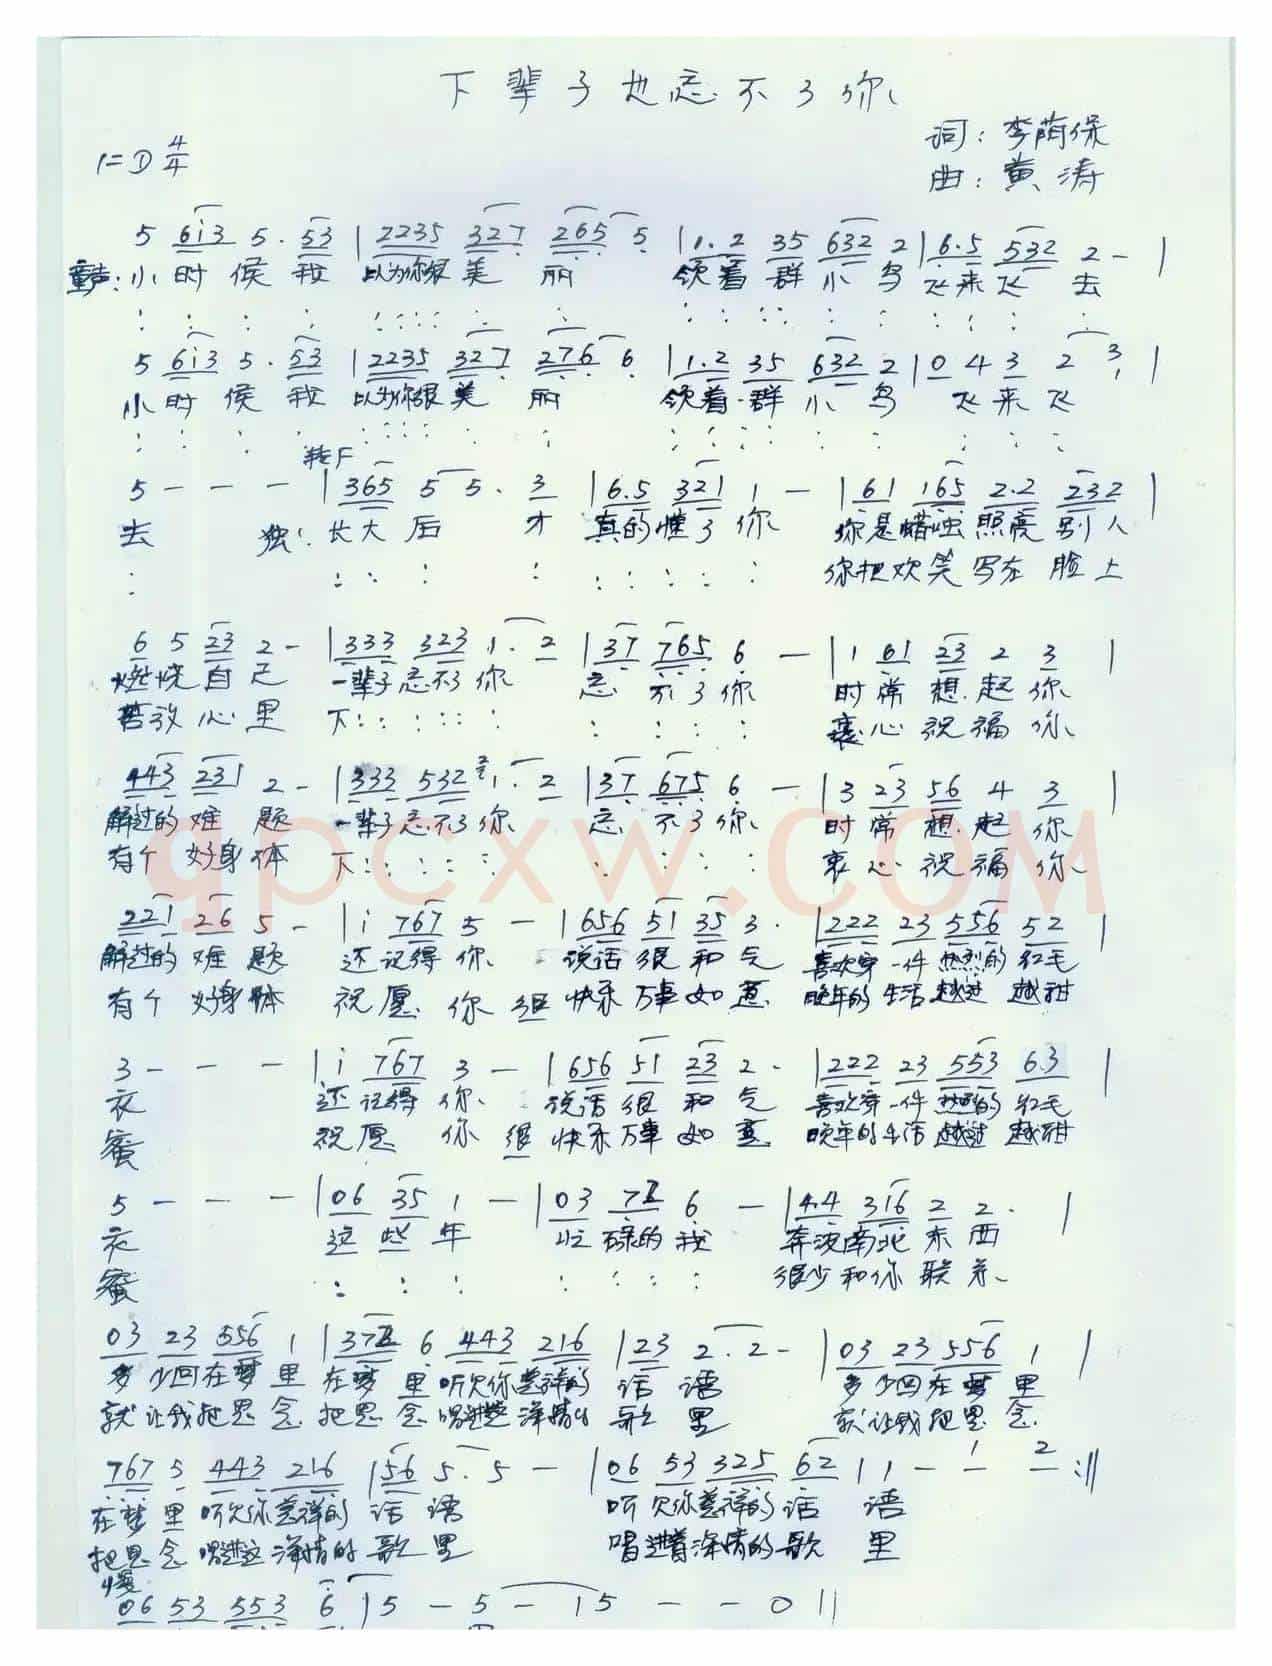 下辈子也忘不了你
词：李荫保
1=D 4/4
曲：黄涛
5 6i3 5. 53 | 2235 327 265 5 | 1.2 35 632 2 | 6.5 532 2 - |
童声：小时候我 以为你很美丽 领着群小鸟飞来飞去
5 6i3 5. 53 | 2235 327 276 6 | 1.2 35 632 2 | 0 4 3 2 3 |
小时候我 以为你很美丽 领着群小鸟 飞来飞
转F
5 - - - | 365 5 5. 3 | 6.5 321 1 - | 61 165 2.2 232 |
去 独：长大后 才 真的懂了你 你是蜡烛照亮别人
你把欢笑写在脸上
6 5 23 2 - | 333 323 1. 2 | 37 765 6 - | 1 61 23 2 3 |
燃烧自己 一辈子忘不了你 忘不了你 时常想起你
苦放心里 下 衷心祝福你
443 231 2 - | 333 532 1. 2 | 37 675 6 - | 3 23 56 4 3 |
解过的难题 一辈子忘不了你 忘不了你 时常想起你
有个好身体 下 衷心祝福你
221 26 5 - | i 767 5 - | 656 51 35 3. | 222 23 556 52 |
解过的难题 还记得你 说话很和气 喜欢穿一件热烈的红毛
有个好身体 祝愿你很快乐万事如意 晚年的生活越过越甜
3 - - - | i 767 3 - | 656 51 23 2. | 222 23 553 6.3 |
衣 还记得你 说话很和气 喜欢穿一件热烈的红毛
蜜 祝愿你很快乐万事如意 晚年的生活越过越甜
5 - - - | 06 35 1 - | 03 72 6 - | 4.4 316 2 2. |
衣 这些年 忙碌的我 奔波南北东西
蜜 很少和你联系
03 23 556 1 | 372 6 443 216 | 23 2. 2 - | 03 23 556 1 |
多少回在梦里 在梦里听见你慈祥的话语 多少回在梦里
就让我把思念 把思念唱进这深情的歌里 就让我把思念
767 5 443 216 | 56 5. 5 - | 06 53 325 62 | 1 - 1 2 :||
在梦里听见你慈祥的话语 听见你慈祥的话语
把思念唱进这深情的歌里 唱进着深情的歌里
慢
06 53 553 6 | 5 - 5 - | 5 - - 0 ||
qpcxw.com